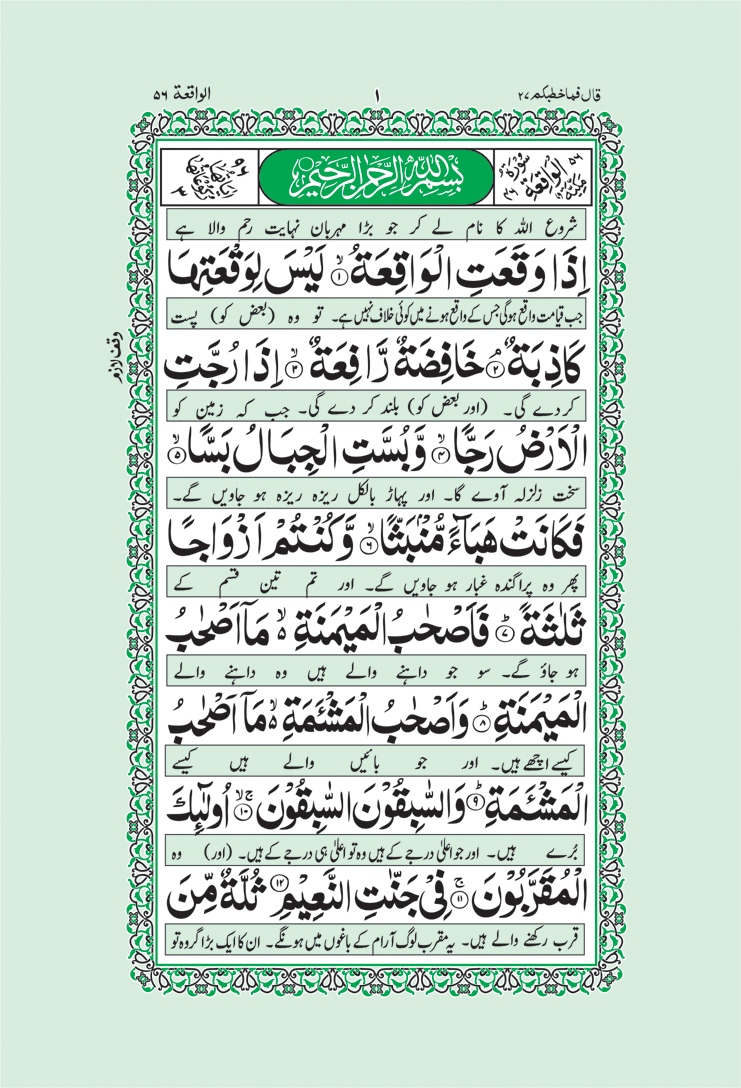 قال فما خطبکم ۲۷
۱
الواقعة ۵۶
سُوْرَةُ الْوَاقِعَةِ مَكِّيَّةٌ
بِسْمِ اللّٰهِ الرَّحْمٰنِ الرَّحِيْمِ
شروع اللہ کا نام لے کر جو بڑا مہربان نہایت رحم والا ہے
اِذَا وَقَعَتِ الْوَاقِعَةُ ۙ﴿۱﴾ لَيْسَ لِوَقْعَتِهَا
جب قیامت واقع ہوگی جس کے واقع ہونے میں کوئی خلاف نہیں ہے۔ تو وہ (بعض کو) پست
كَاذِبَةٌ ۘ﴿۲﴾ خَافِضَةٌ رَّافِعَةٌ ۙ﴿۳﴾ اِذَا رُجَّتِ
وقف لازم
کر دے گی۔ (اور بعض کو) بلند کر دے گی۔ جب کہ زمین کو
الْاَرْضُ رَجًّا ۙ﴿۴﴾ وَّبُسَّتِ الْجِبَالُ بَسًّا ۙ﴿۵﴾
سخت زلزلہ آوے گا۔ اور پہاڑ بالکل ریزہ ریزہ ہو جاویں گے۔
فَكَانَتْ هَبَآءً مُّنْۢبَثًّا ۙ﴿۶﴾ وَّكُنْتُمْ اَزْوَاجًا
پھر وہ پراگندہ غبار ہو جاویں گے۔ اور تم تین قسم کے
ثَلٰثَةً ؕ﴿۷﴾ فَاَصْحٰبُ الْمَيْمَنَةِ ۙ۬ مَاۤ اَصْحٰبُ
ہو جاؤ گے۔ سو جو داہنے والے ہیں وہ داہنے والے
الْمَيْمَنَةِ ؕ﴿۸﴾ وَاَصْحٰبُ الْمَشْـَٔمَةِ ۙ۬ مَاۤ اَصْحٰبُ
کیسے اچھے ہیں۔ اور جو بائیں والے ہیں کیسے
الْمَشْـَٔمَةِ ؕ﴿۹﴾ وَالسّٰبِقُوْنَ السّٰبِقُوْنَ ۚۙ﴿۱۰﴾ اُولٰٓئِكَ
بُرے ہیں۔ اور جو اعلیٰ درجے کے ہیں وہ تو اعلیٰ ہی درجے کے ہیں۔ (اور) وہ
الْمُقَرَّبُوْنَ ۚ﴿۱۱﴾ فِيْ جَنّٰتِ النَّعِيْمِ ﴿۱۲﴾ ثُلَّةٌ مِّنَ
قرب رکھنے والے ہیں۔ یہ مقرب لوگ آرام کے باغوں میں ہونگے۔ ان کا ایک بڑا گروہ تو